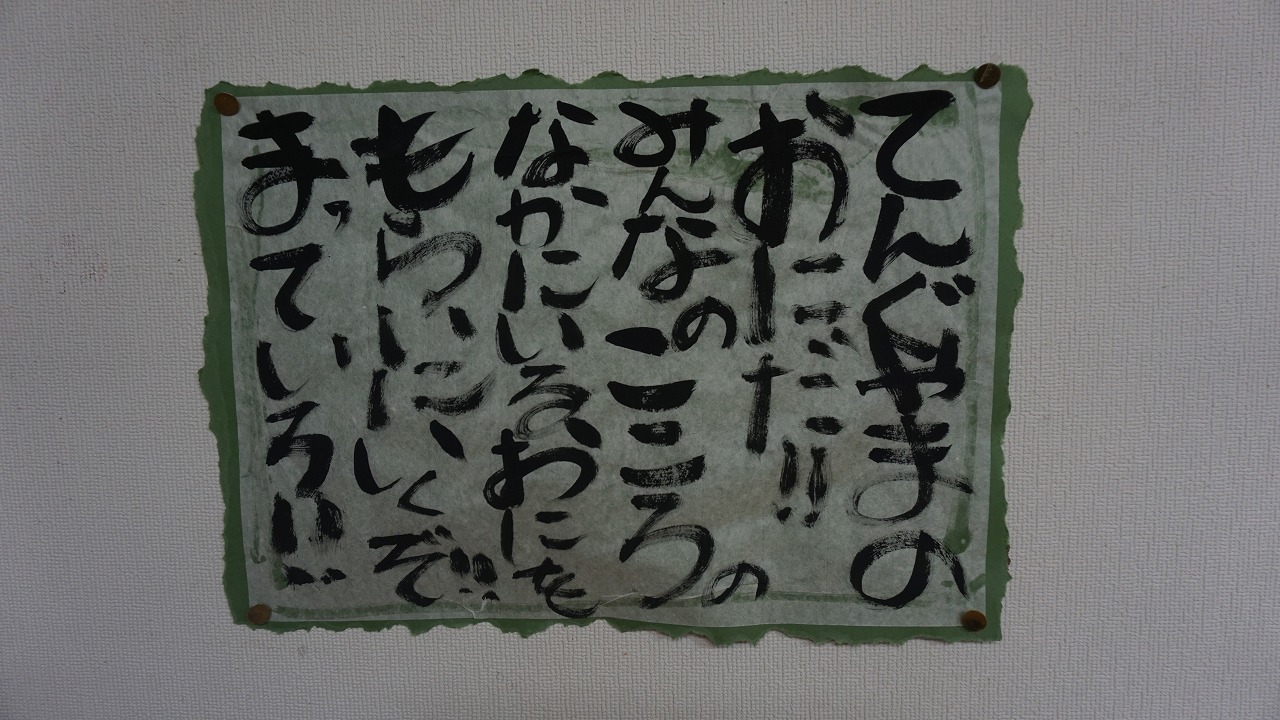 てんぐやまの
おにだ!!
みんなのこころの
なかにいるおにを
もらいにいくぞ!!
まっていろ!!